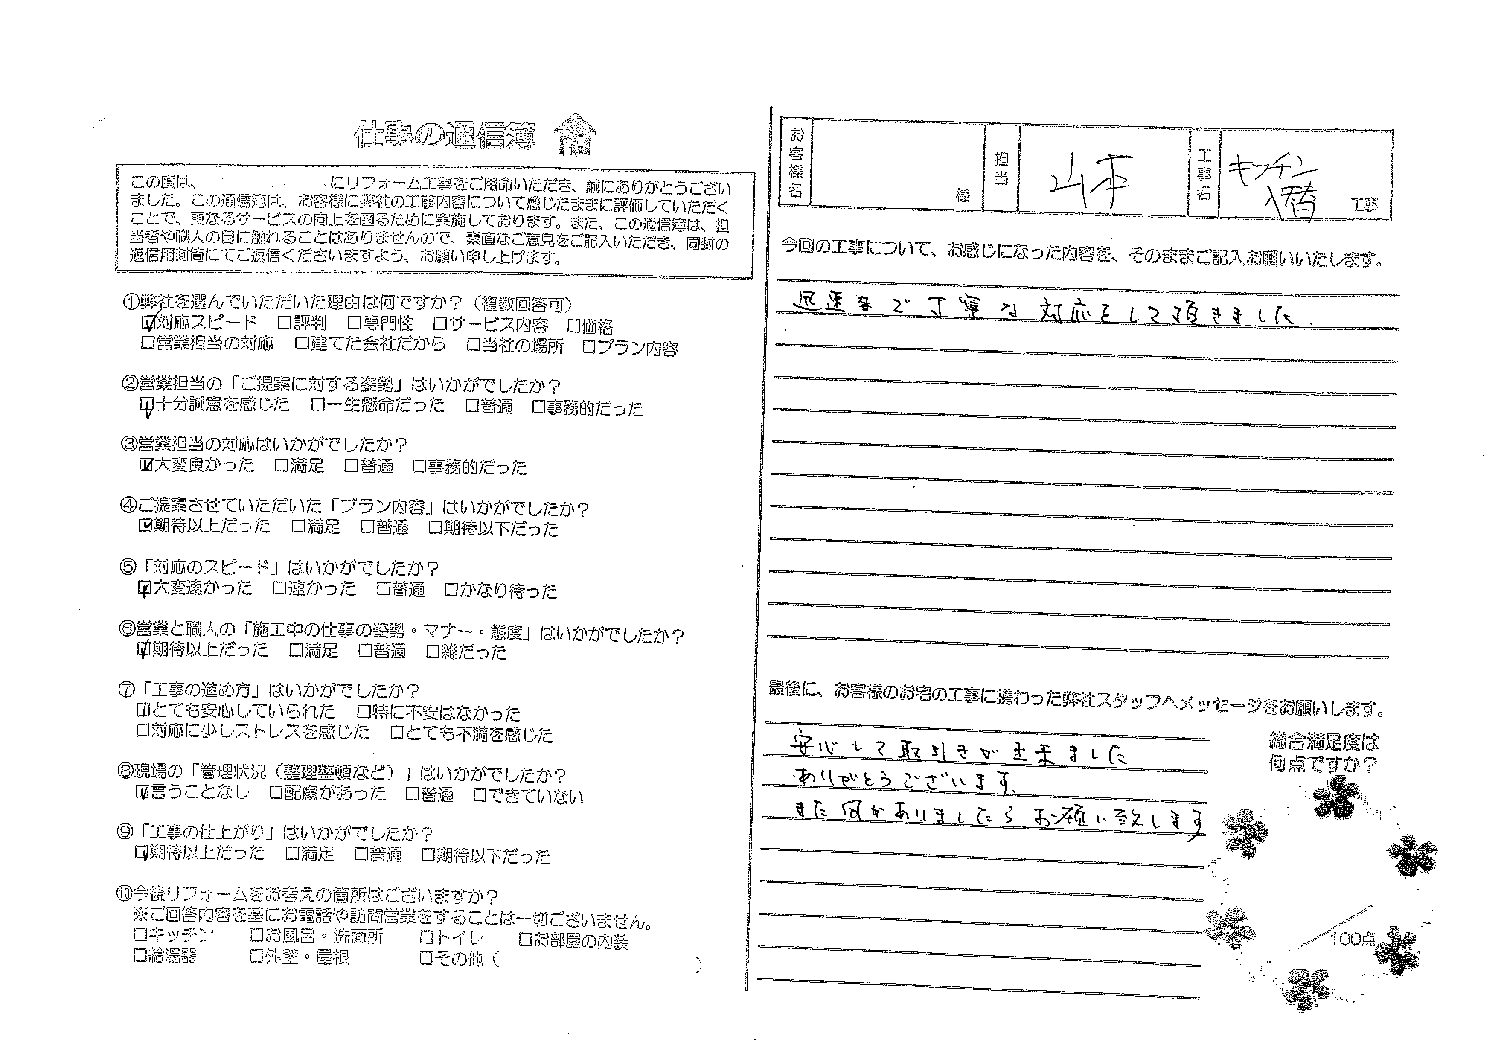 仕事の通信簿
この度は、 にリフォーム工事をご用命いただき、誠にありがとうござい
ました。この通信簿は、お客様に弊社の工事内容について感じたままに評価していただく
ことで、更なるサービスの向上を図るために実施しております。また、この通信簿は、担
当者や職人の目に触れることはありませんので、素直なご意見をご記入いただき、同封の
返信用封筒にてご返信くださいますよう、お願い申し上げます。
①弊社を選んでいただいた理由は何ですか？（複数回答可）
☑対応スピード □評判 □専門性 □サービス内容 □価格
□営業担当の対応 □建てた会社だから □当社の場所 □プラン内容
②営業担当の「ご提案に対する姿勢」はいかがでしたか？
☑十分誠意を感じた □一生懸命だった □普通 □事務的だった
③営業担当の対応はいかがでしたか？
☑大変良かった □満足 □普通 □事務的だった
④ご提案させていただいた「プラン内容」はいかがでしたか？
☑期待以上だった □満足 □普通 □期待以下だった
⑤「対応のスピード」はいかがでしたか？
☑大変速かった □速かった □普通 □かなり待った
⑥営業と職人の「施工中の仕事の姿勢・マナー・態度」はいかがでしたか？
☑期待以上だった □満足 □普通 □嫌だった
⑦「工事の進め方」はいかがでしたか？
☑とても安心していられた □特に不安はなかった
□対応に少しストレスを感じた □とても不満を感じた
⑧現場の「管理状況（整理整頓など）」はいかがでしたか？
☑言うことなし □配慮があった □普通 □できていない
⑨「工事の仕上がり」はいかがでしたか？
☑期待以上だった □満足 □普通 □期待以下だった
⑩今後リフォームをお考えの箇所はございますか？
※ご回答内容を基にお電話や訪問営業をすることは一切ございません。
□キッチン □お風呂・洗面所 □トイレ □お部屋の内装
□給湯器 □外壁・屋根 □その他（ ）
お客様名 様 担当 山本 工事名 キッチン入替 工事
今回の工事について、お感じになった内容を、そのままご記入お願いいたします。
迅速で丁寧な対応をして頂きました。
最後に、お客様のお宅の工事に携わった弊社スタッフへメッセージをお願いします。
安心して取引きが出来ました
ありがとうございます。
また何かありましたらお願い致します
総合満足度は
何点ですか？
／100点